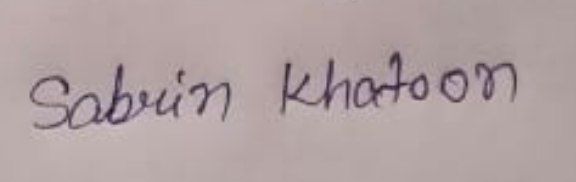 Sabrin Khatoon